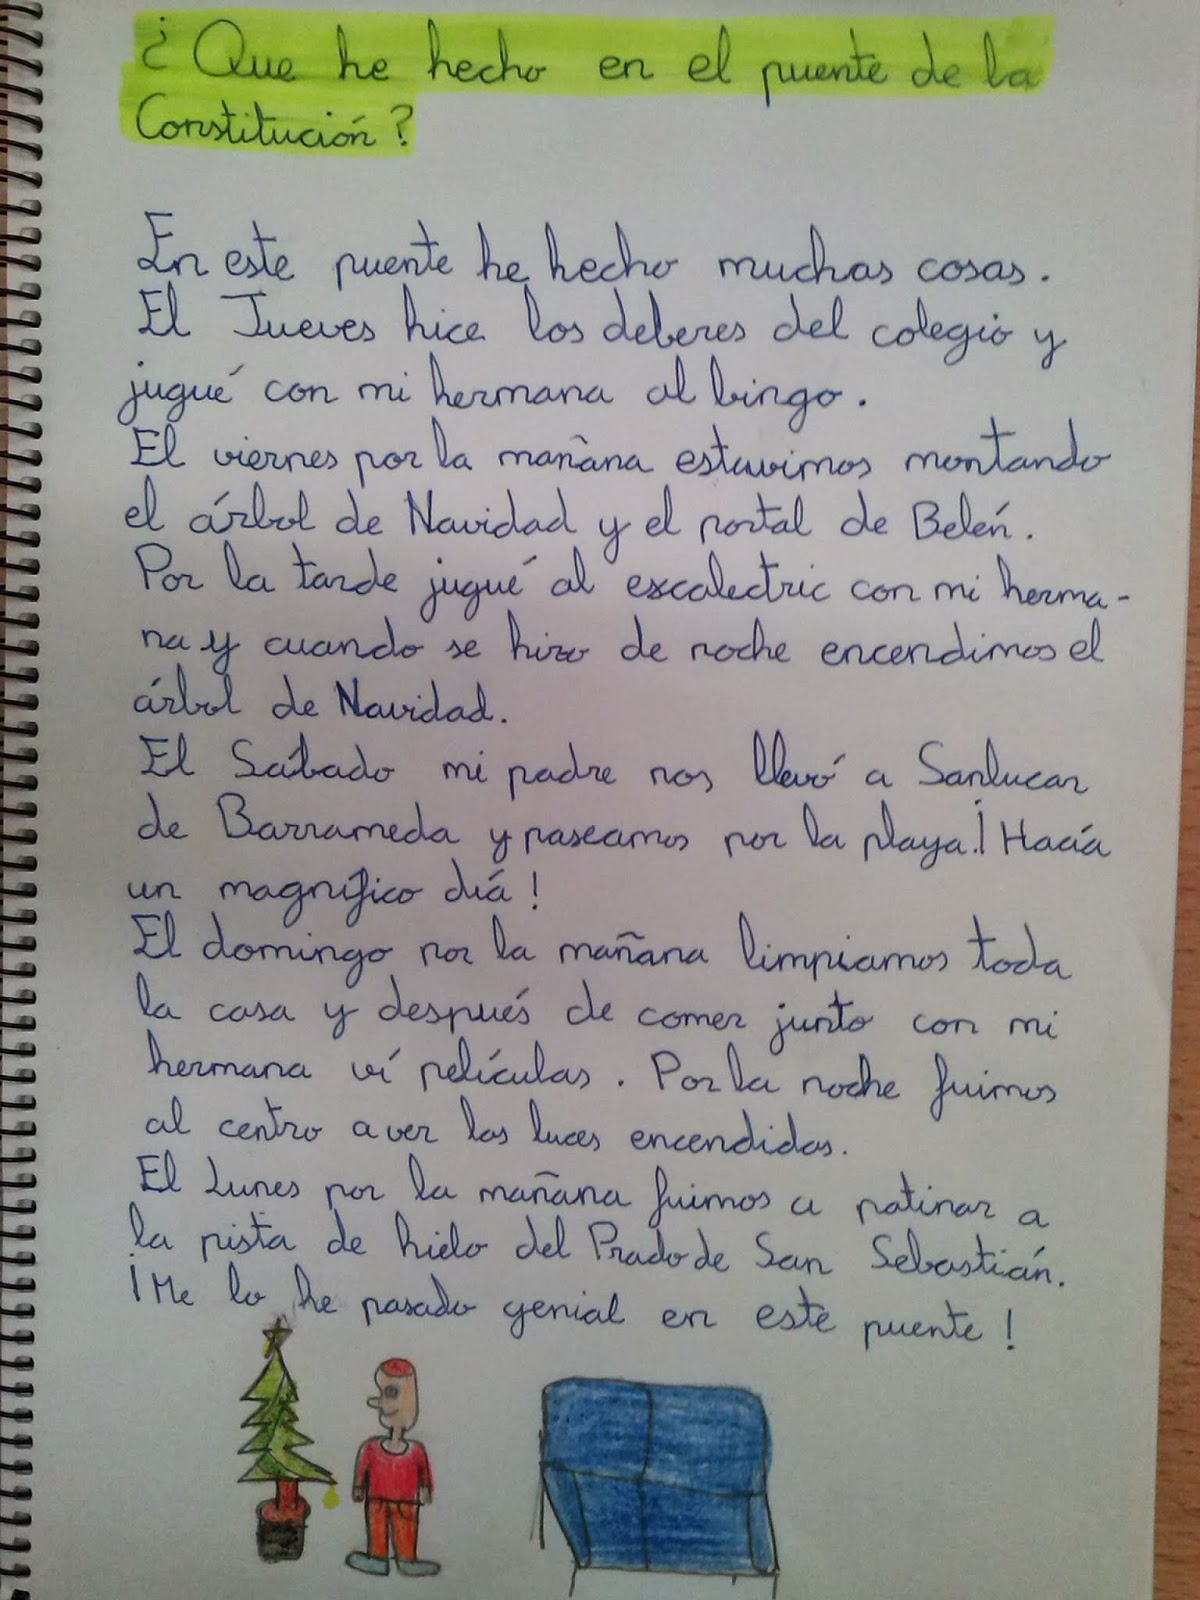 ¿Que he hecho en el puente de la
Constitución?
En este puente he hecho muchas cosas.
El Jueves hice los deberes del colegio y
jugué con mi hermana al bingo.
El viernes por la mañana estuvimos montando
el árbol de Navidad y el portal de Belén.
Por la tarde jugué al escalectric con mi herma-
na y cuando se hizo de noche encendimos el
árbol de Navidad.
El Sábado mi padre nos llevó a Sanlucar
de Barrameda y paseamos por la playa.¡Hacía
un magnífico día!
El domingo por la mañana limpiamos toda
la casa y después de comer junto con mi
hermana ví películas. Por la noche fuimos
al centro a ver las luces encendidas.
El Lunes por la mañana fuimos a patinar a
la pista de hielo del Prado de San Sebastián.
¡Me lo he pasado genial en este puente!